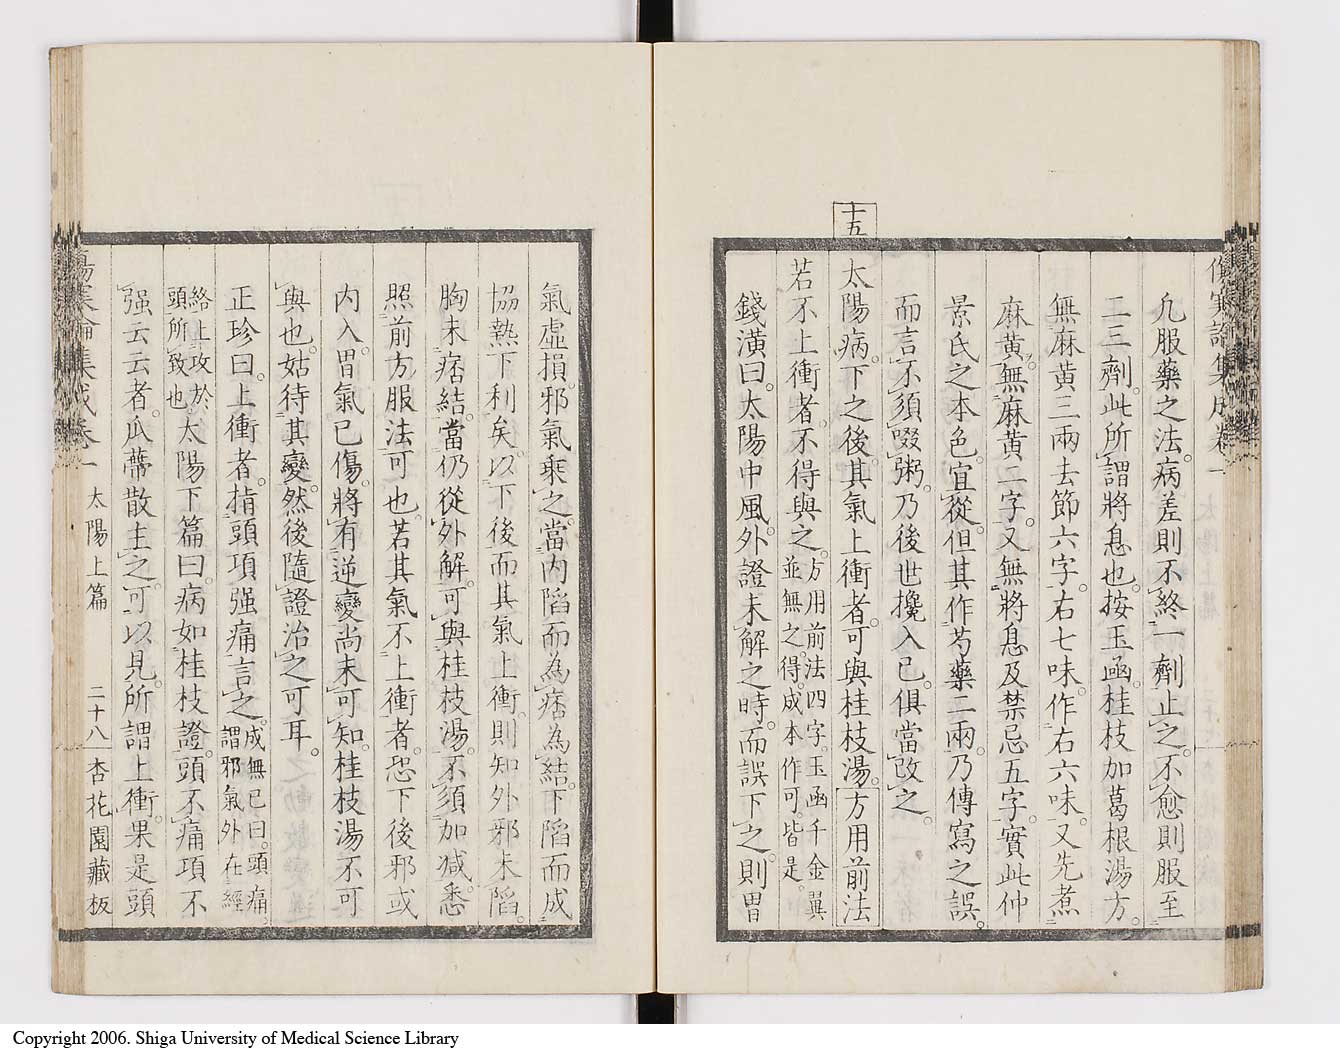 傷寒論集成卷一
凢服藥之法。病差則不終一劑止之。不愈則服至
二三劑。此所謂將息也。按玉函。桂枝加葛根湯方。
無麻黃三兩去節六字。右七味。作右六味。又先煮
麻黃。無麻黃二字。又無將息及禁忌五字。實此仲
景氏之本色。宜從。但其作芍藥二兩。乃傳寫之誤。
而言不須啜粥。乃後世攙入已。俱當改之。
十五
太陽病。下之後。其氣上衝者。可與桂枝湯。方用前法
若不上衝者。不得與之。方用前法四字。玉函千金翼
並無之。得。成本作可。皆是。
錢潢曰。太陽中風。外證未解之時。而誤下之。則胃
氣虛損。邪氣乘之。當內陷而為痞為結。下陷而成
協熱下利矣。以下後而其氣上衝。則知外邪未陷。
胸未痞結。當仍從外解。可與桂枝湯。不須加減。悉
照前方服法可也。若其氣不上衝者。恐下後邪或
內入。胃氣已傷。將有逆變。尚未可知。桂枝湯不可
與也。姑待其變。然後隨證治之可耳。
正珍曰。上衝者。指頭項强痛言之。成無已曰。頭痛。
謂邪氣外在經
絡上攻於
頭所致也
太陽下篇曰。病如桂枝證。頭不痛項不
强云云者。瓜蔕散主之。可以見。所謂上衝。果是頭
傷寒論集成卷一 太陽上篇 二十八 杏花園藏板
Copyright 2006. Shiga University of Medical Science Library